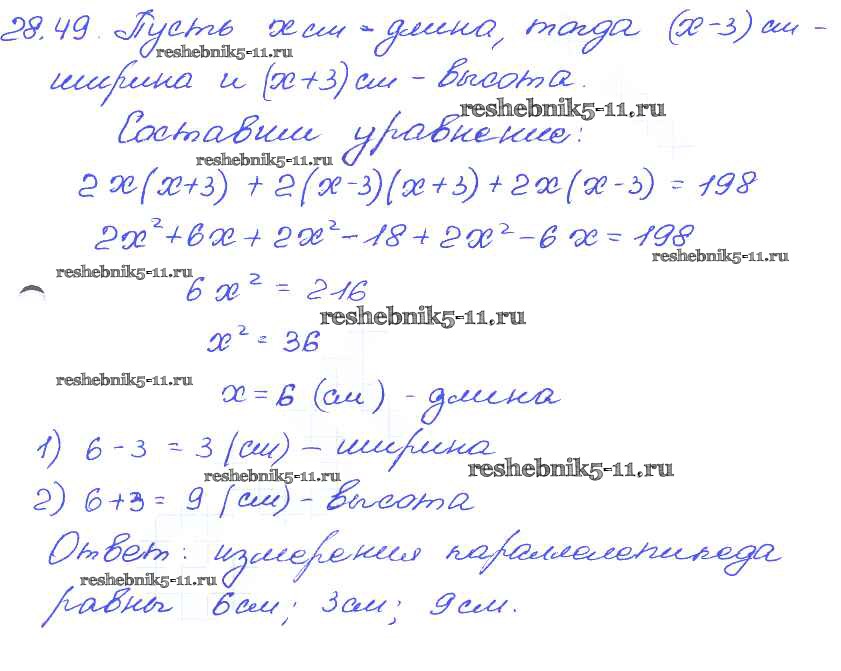 28.49. Пусть x см - длина, тогда (x-3) см -
reshebnik5-11.ru
ширина и (x+3) см - высота.
reshebnik5-11.ru
Составим уравнение:
reshebnik5-11.ru
2x(x+3) + 2(x-3)(x+3) + 2x(x-3) = 198
2x²+6x+2x²-18+2x²-6x=198
reshebnik5-11.ru
reshebnik5-11.ru
6x² = 216
reshebnik5-11.ru
x² = 36
reshebnik5-11.ru
x = 6 (см) - длина
1) 6 - 3 = 3 (см) - ширина
reshebnik5-11.ru
reshebnik5-11.ru
2) 6+3 = 9 (см) - высота
Ответ: измерения параллелепипеда
reshebnik5-11.ru
равны 6см; 3см; 9см.